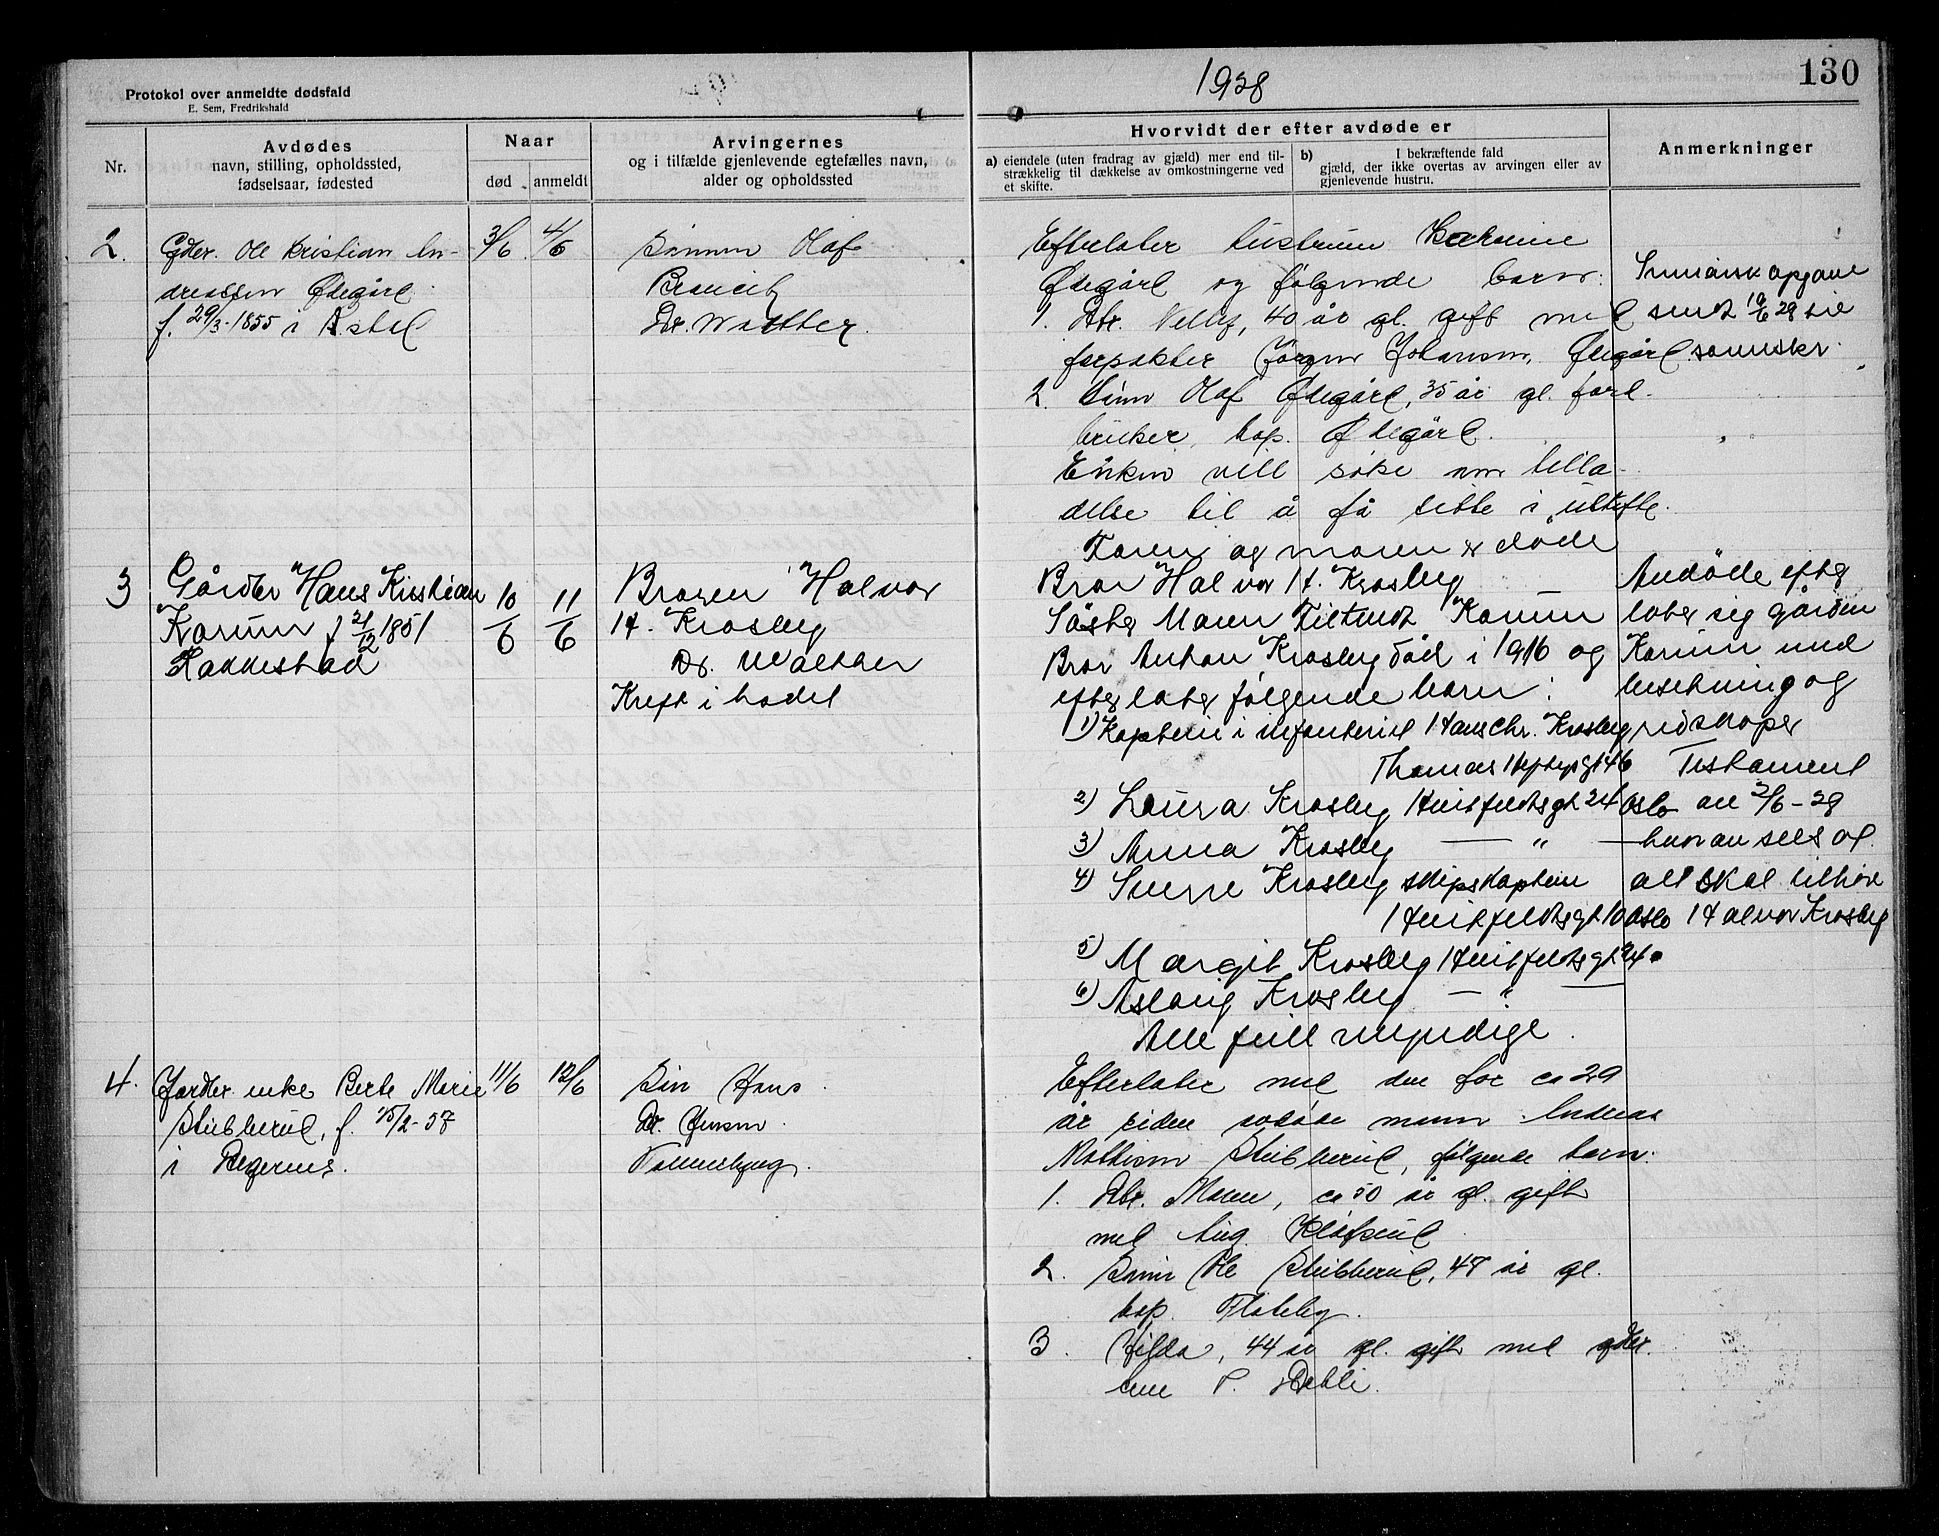 Protokol over anmeldte dødsfald
E. Sem, Fredrikshald
1928
130
Nr.
Avdødes
navn, stilling, opholdssted,
fødselsaar, fødested
Naar
død
anmeldt
Arvingernes
og i tilfælde gjenlevende egtefælles navn,
alder og opholdssted
Hvorvidt der efter avdøde er
a) eiendele (uten fradrag av gjæld) mer end til-
strækkelig til dækkelse av omkostningerne ved
et skifte.
b) I bekræftende fald
gjæld, der ikke overtas av arvingen eller av
gjenlevende hustru.
Anmerkninger
2.
Gdbr. Ole Kristian An-
dreassen Ødegård
f. 29/3-1855 i
3/6
4/6
Sønnen Olaf
Dr. Walther
Efterlater hustruen Karoline
Ødegård og følgende barn:
1. Dtr. Nelly, 40 år gl. gift med
forpakter Jørgen Johansen, Ødegård
2. Sønn Olaf Ødegård, 35 år gl. jord-
bruker, bop. Ødegård.
Enken vill søke om tilla-
delse til å få sitte i uskifte.
Summarisk opgave
sendt 19/6 28 til
sorenskr.
3
Gårdbr Hans Kristian
Korum f 21/12 1851
Rakkestad
10/6
11/6
Broren Halvor
H. Krosby
Dr. Walther
Kreft i hodet
Faren og moren er døde
Bror Halvor H. Krosby
Søster Maren Korum
Bror Anton Krosby død i 1916 og
efterlater følgende barn:
1) Kaptein i infanteriet Hans Chr. Krosby
Thomas Heftyesgt 46
2) Laura Krosby Huitfeldtsgt 24 Oslo
3) Anna Krosby — " —
4) Sverre Krosby skipskaptein
Huitfeldtsgt 10 Oslo
5) Margit Krosby Huitfeldtsgt 24
6) Aslaug Krosby — " —
Alle full myndige.
Avdøde efter
later sig gården
Korum med
besetning og
redskaper
Testament
av 2/6-28
hvorav sees at
alt skal tilhøre
Halvor Krosby
4.
Gårdbr. enke Berte Marie
Stubberud, f. 15/2-57
i Degernes.
11/6
12/6
Søn Hans
Dr. Jensen
Efterlater med den for ca 29
år siden avdøde mann Andreas
Mathisen Stubberud, følgende barn:
1. Dtr. Maren, ca 50 år gl. gift
med Aug.
2. Sønn Ole Stubberud, 47 år gl.
bop. Flateby.
3. Hilda, 44 år gl. gift med gdbr.
P. Dahle.